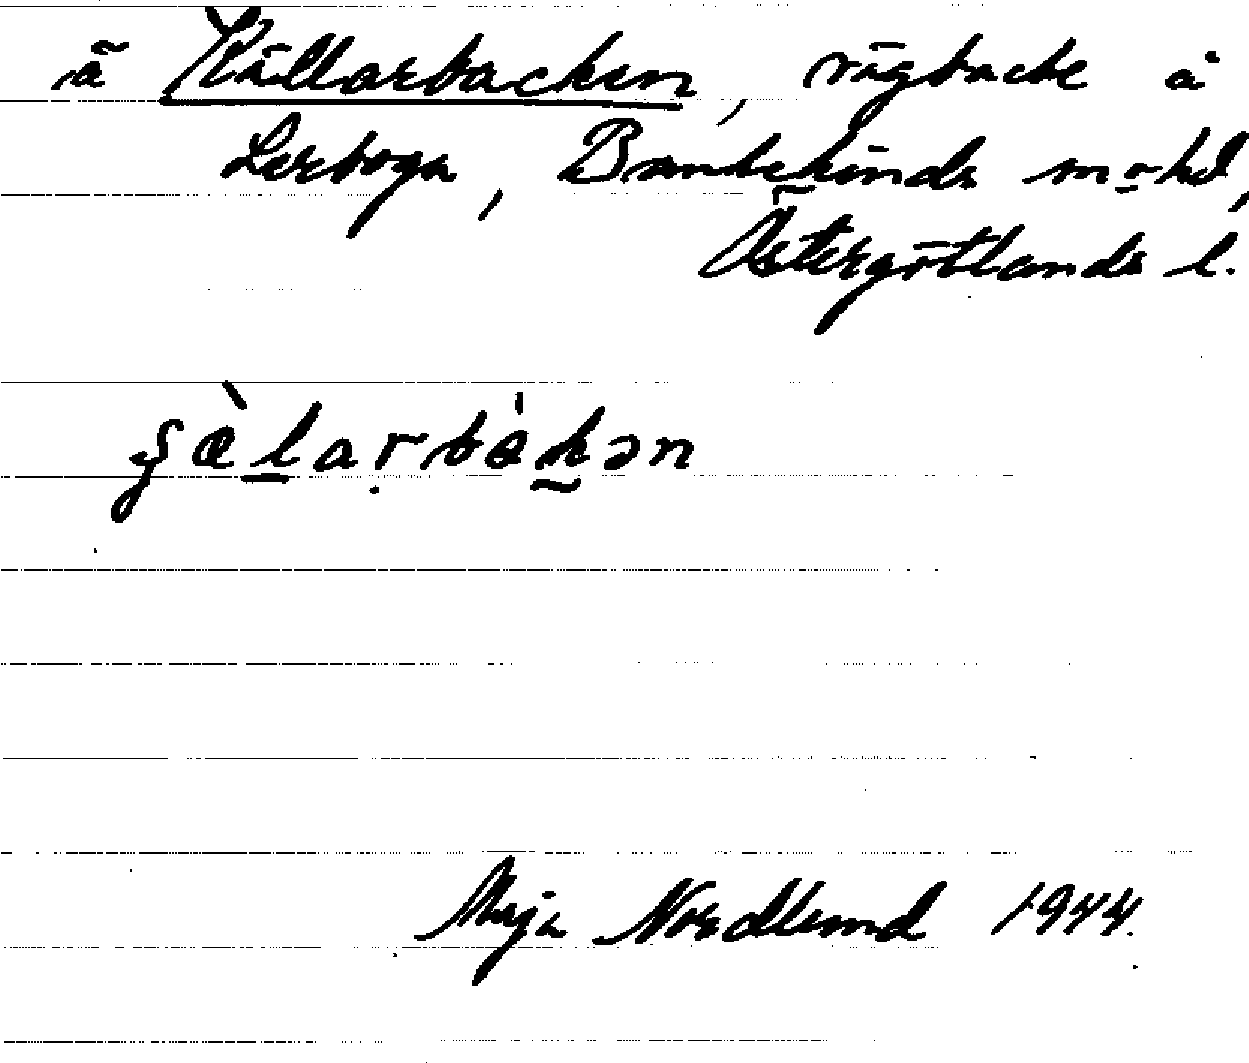 ä Källarbacken, vägbacke å
Lerboga, Bankekinds sn o hd,
Östergötlands l.
Maja Nordlund 1944.